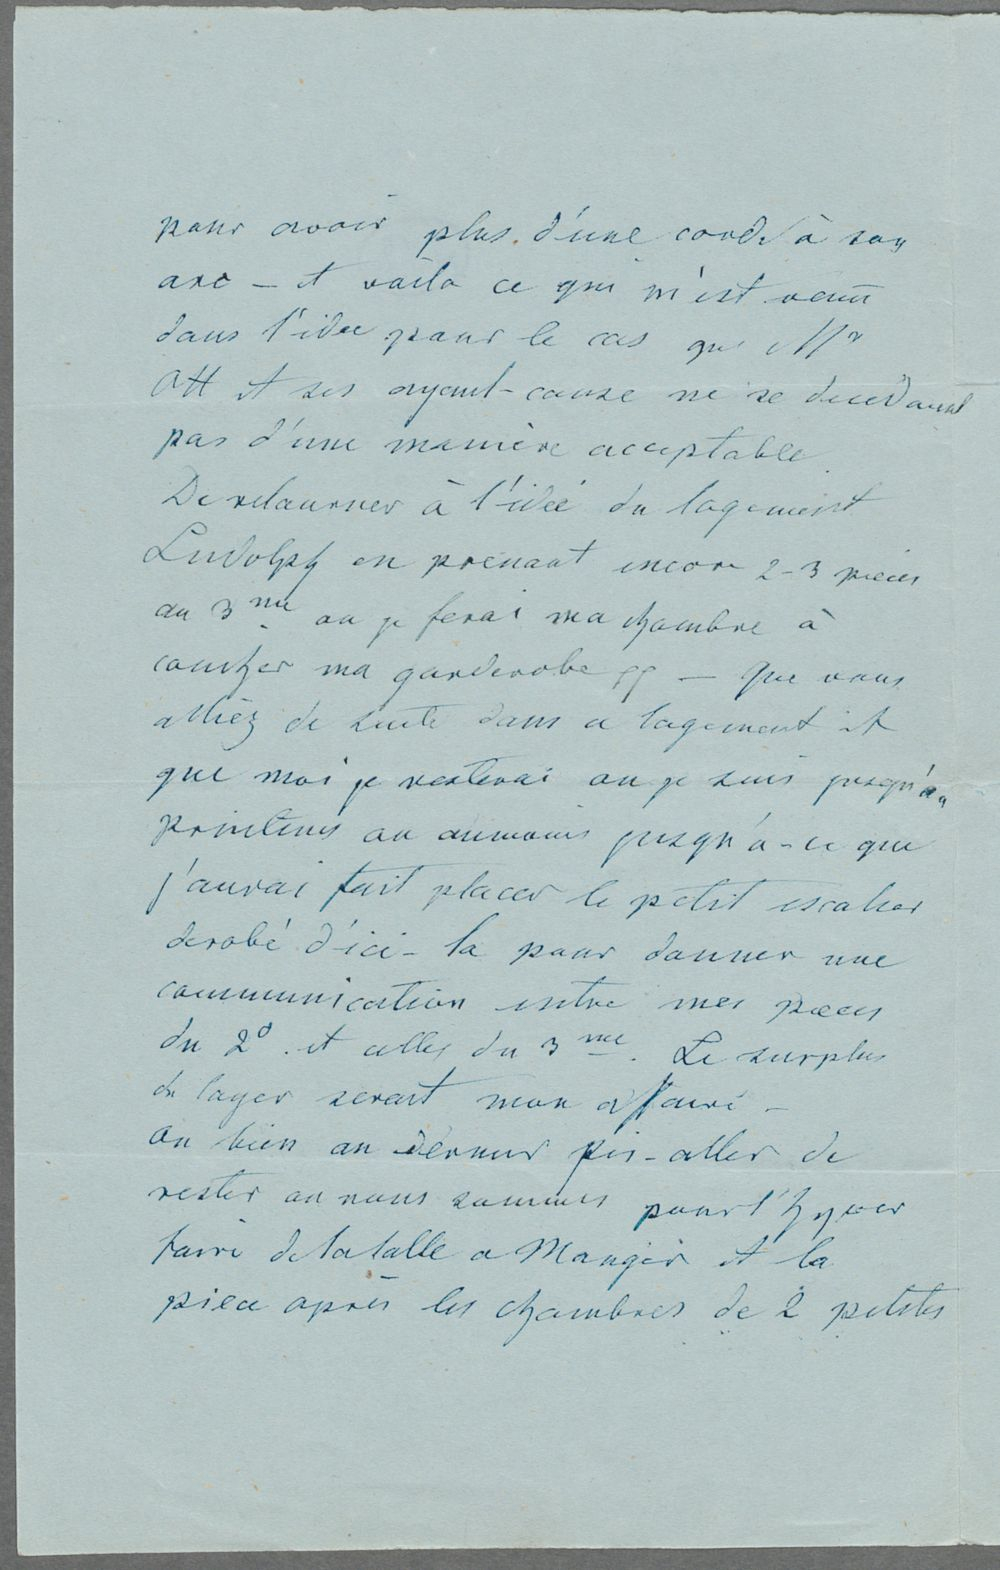 pour avoir plus d'une corde à son
arc – et voila ce qui m'est venu
dans l'idée pour le cas que Mr
Ott et ses ayant-cause ne se
pas d'une manière acceptable.
De retourner à l'idée du logement
Ludolph en prenant encore 2–3 pièces
au 3me ou je ferai ma chambre à
coucher ma garderobe – que vous
alliez de suite dans ce logement et
que moi je resterai ou je suis jusqu'au
printems ou aumoins jusqu'a-ce que
j'aurai fait placer le petit escalier
derobé d'ici-la pour donner une
communication entre mes pieces
du 2d. et celles du 3me. Le surplus
du loyer serait mon affaire –
ou bien au dernier pis-aller de
rester ou nous sommes pour l'hyver
faire de la salle a Manger et la
piece après les chambres de 2 petites